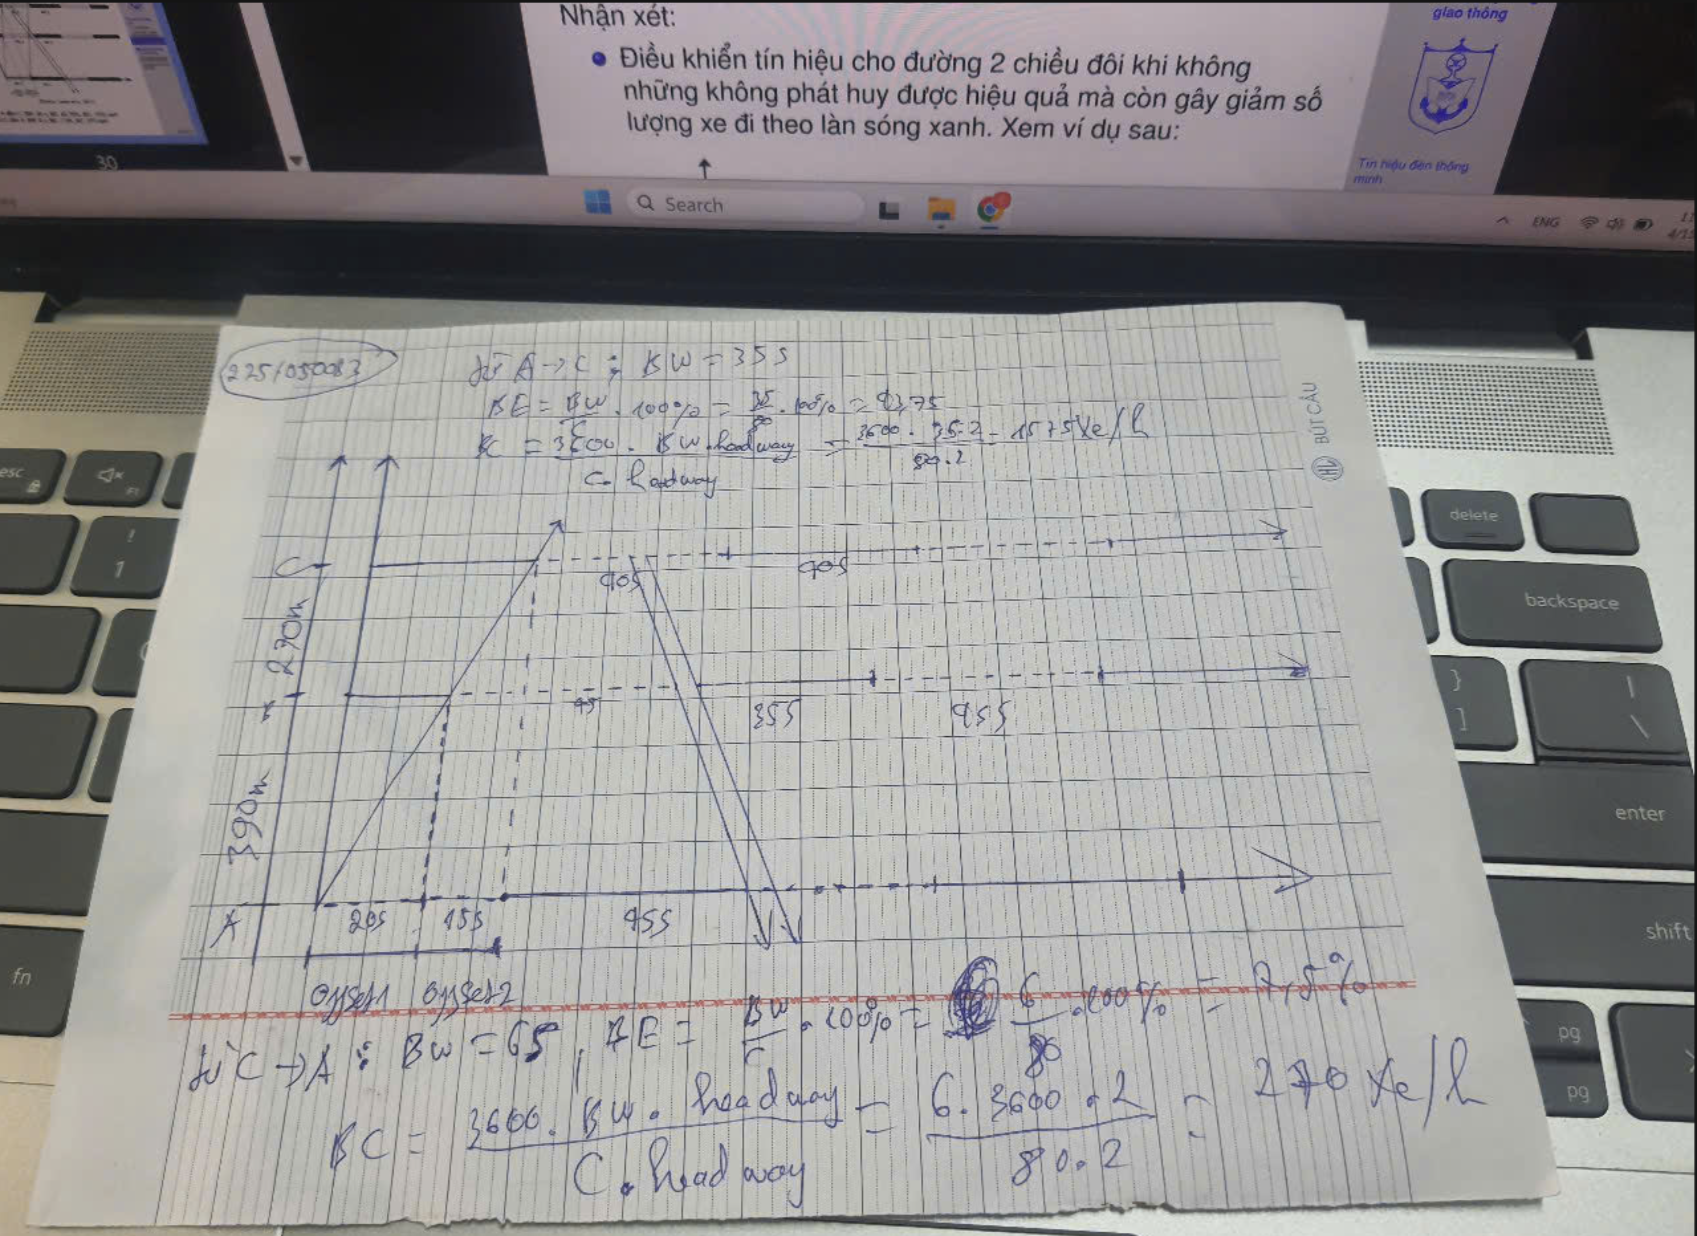 Nhận xét:
giao thông
Điều khiển tín hiệu cho đường 2 chiều đôi khi không
những không phát huy được hiệu quả mà còn gây giảm số
lượng xe đi theo làn sóng xanh. Xem ví dụ sau:
Tín hiệu đèn thông
minh
30
Search
ENG
2251050083
từ A → C : BW = 35s
BE = BW/C . 100% = 35/80 . 100% = 43,75
= 3600 . BW . headway / C . headway = 3600 . 35 . 2 / 80 . 2 = 1575 xe/h
BÚT CẦU
C
40s
40s
270m
45
35s
45s
390m
A
20s
15s
45s
offset1 offset2
từ C → A : BW = 6s , BE = BW/C . 100% = 6/80 . 100% = 7,5%
BC = 3600 . BW . headway / C . headway = 6 . 3600 . 2 / 80 . 2 = 270 xe/h
esc
!
1
fn
delete
backspace
}
]
|
\
enter
shift
pg
pg